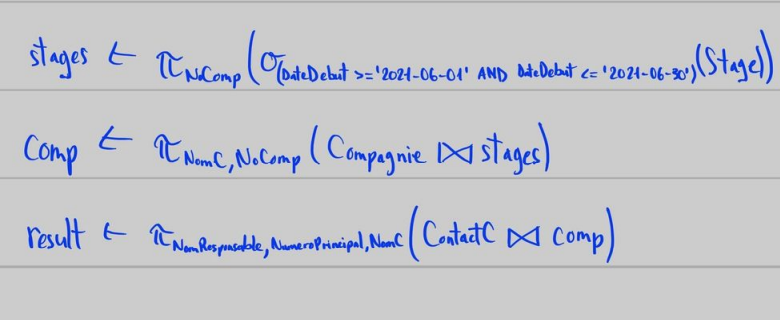 stages ← π NoComp (σ (DateDebut >= '2021-06-01' AND DateDebut <= '2021-06-30') (Stage))
Comp ← π NomC, NoComp (Compagnie ⋈ stages)
result ← π NomResponsable, NumeroPrincipal, NomC (ContactC ⋈ comp)